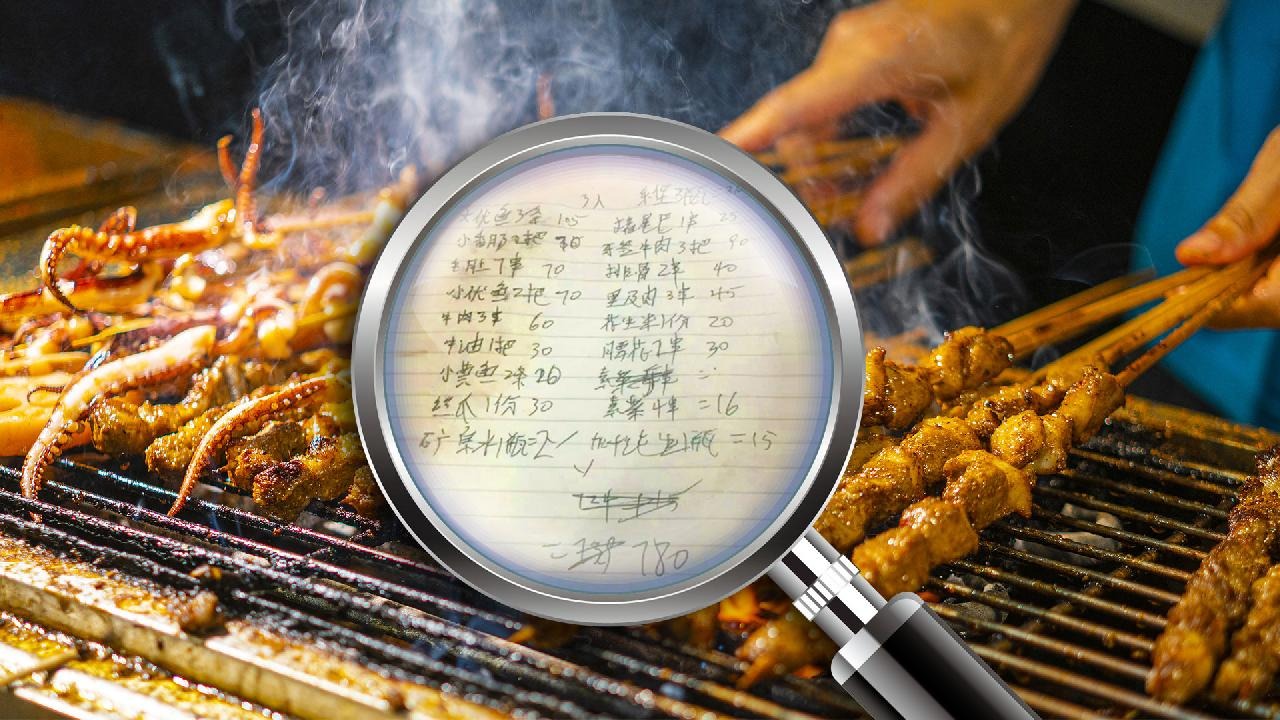 3人
大优鱼3条 105 猪尾巴1串 25
小香肠2把 30 牙签牛肉3把 90
牛肚7串 70 排骨2串 40
小优鱼2把 70 里及肉3串 45
牛肉3串 60 花生米1份 20
牛油1把 30 腰花2串 30
小黄鱼2条 20
丝瓜1份 30 素菜4串 =16
矿泉水1瓶=2 加州比卫1瓶 =15
780